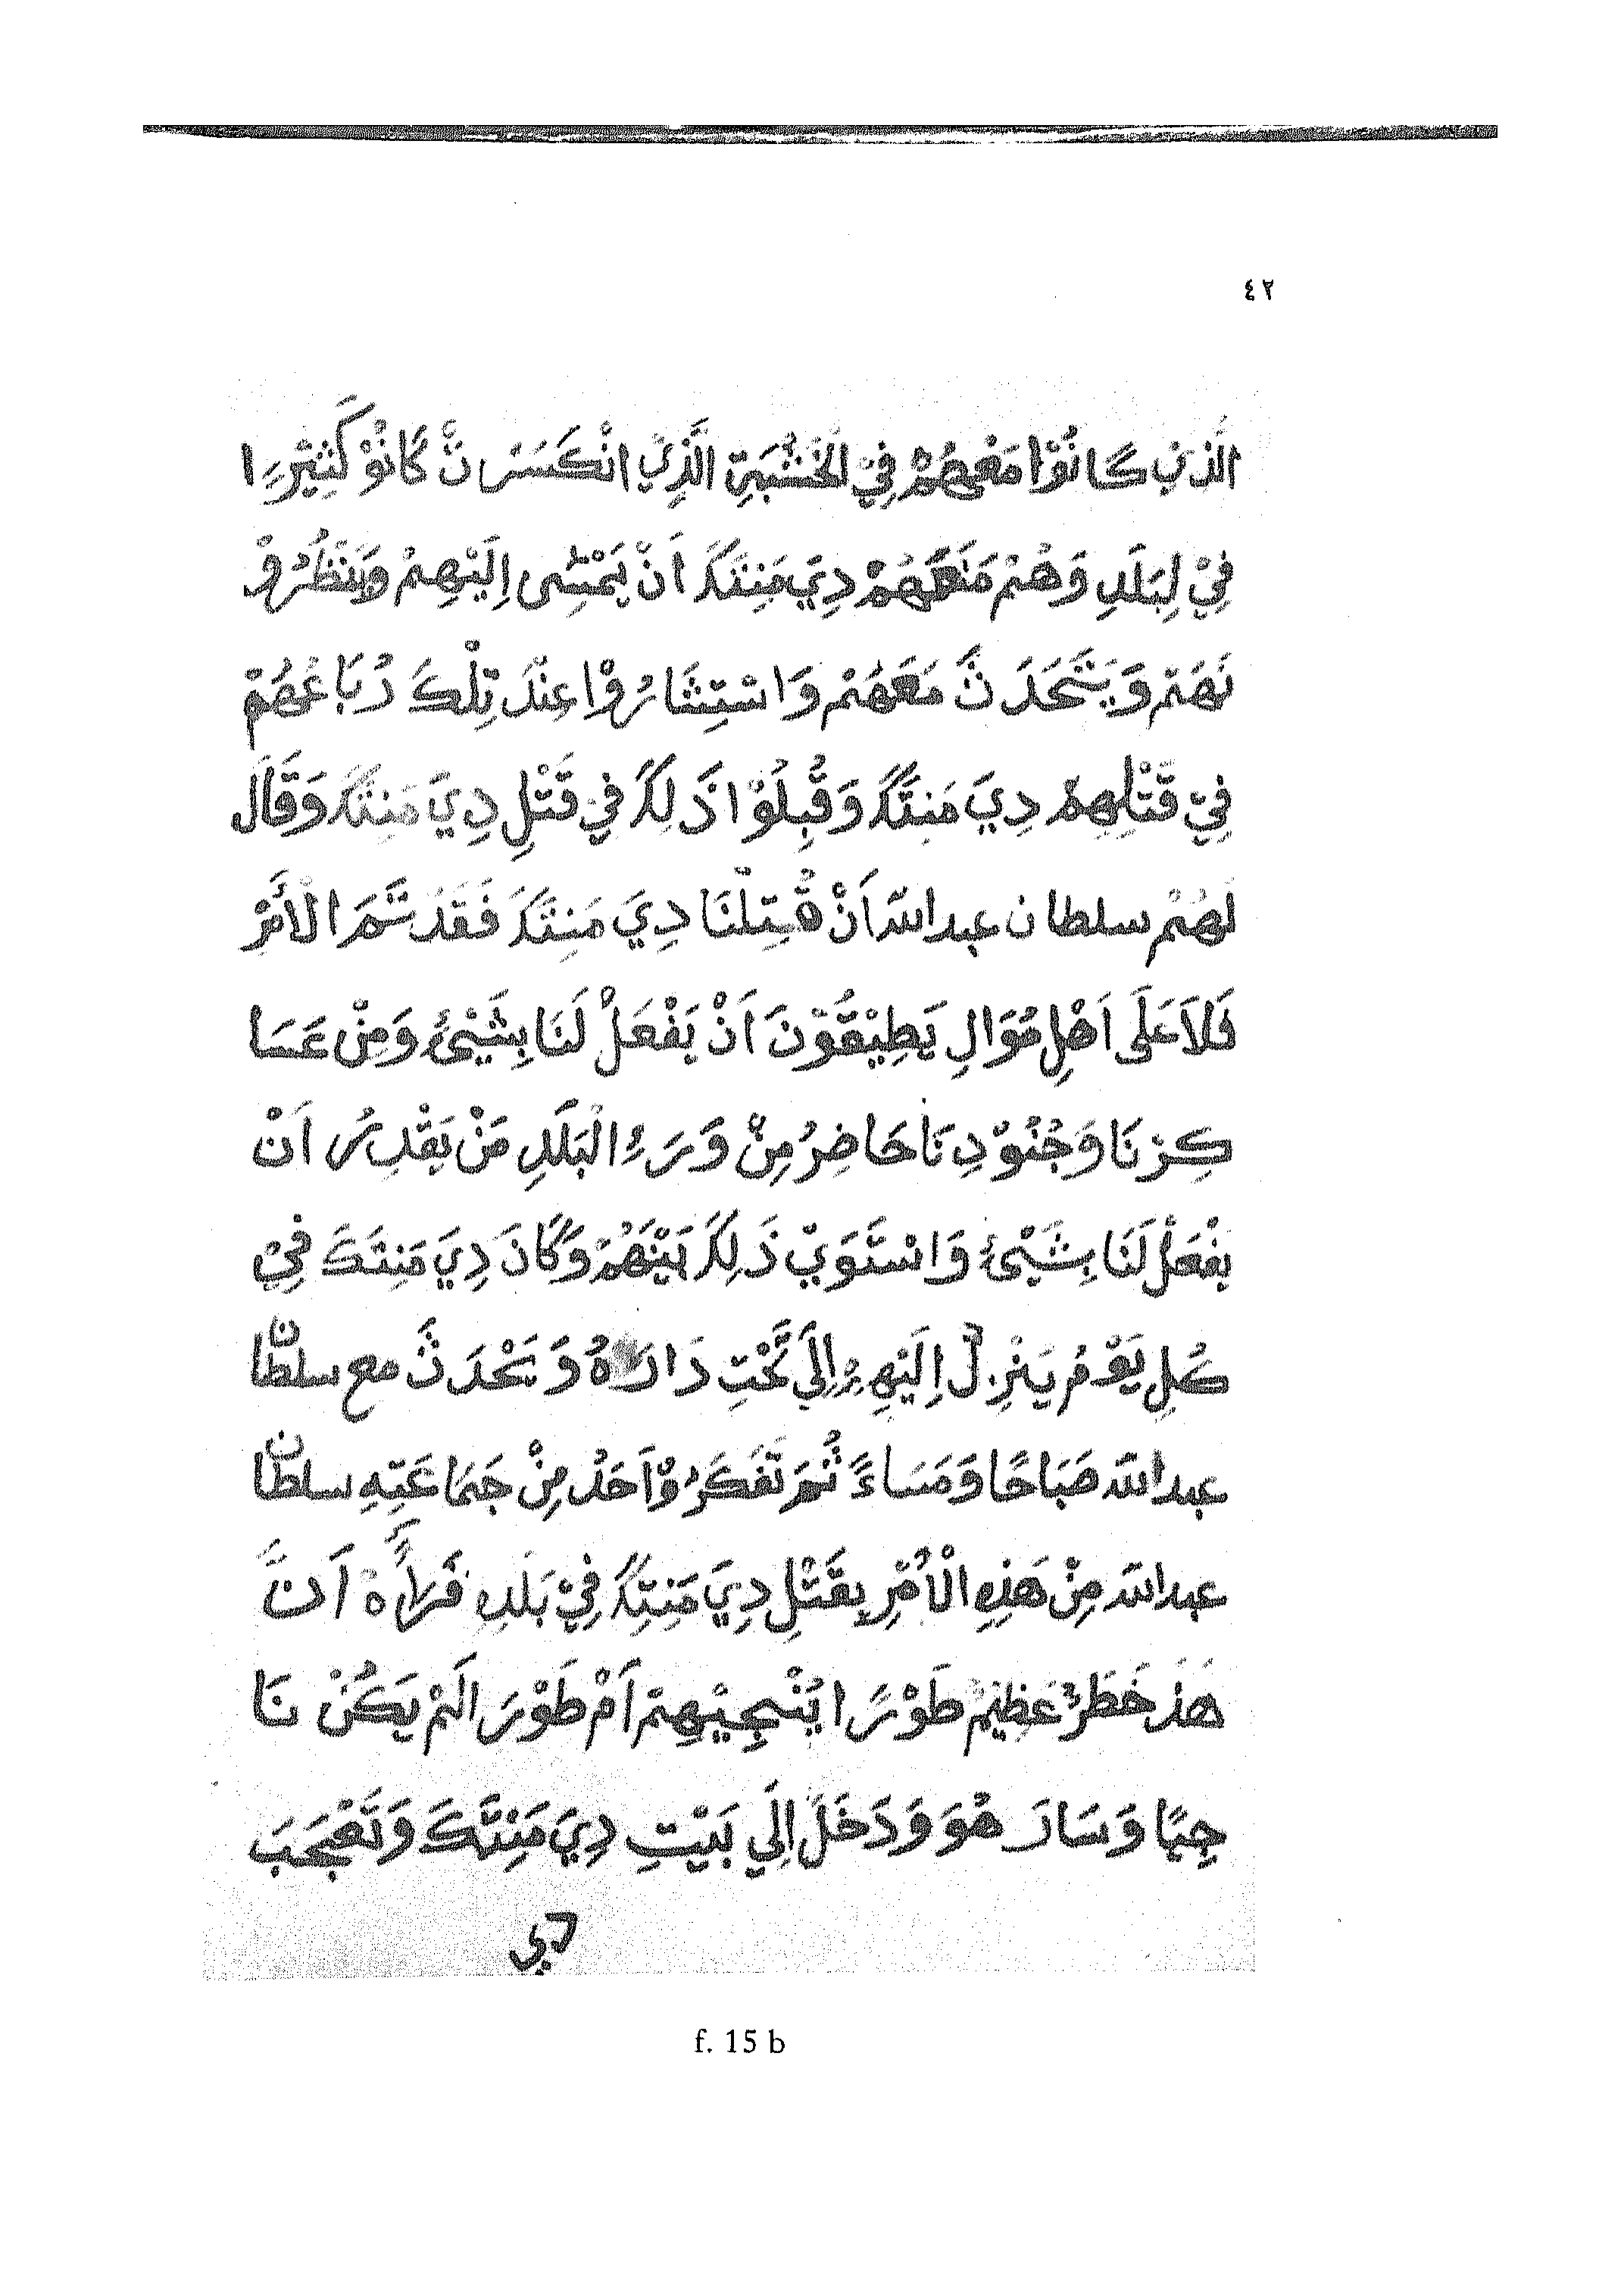 ٤٢
الَّذِيْ كَانُوْا مَعَهُمْ فِيْ الْخَشَبَةِ الَّذِيْ انْكَسَرَتْ كَانُوْ كَثِيْرًا
فِيْ لِبَلَدِ وَهُمْ مَنَعَهُمْ دِيَ مَنِتَكَ اَنْ يَمْشِى اِلَيْهِمْ وَيَنْظُرُوْ
نَهُمْ وَيَتَحَدَثُ مَعَهُمْ وَاسْتِشَارُوْا عِنْدَ تِلْكَ رُبَاعُهُمْ
فِيْ قَتْلِهِمْ دِيَ مَنِتَكَ وَقَبِلُوْا ذَلِكَ فِيْ قَتْلِ دِيَ مَنِتَكَ وَقَالَ
لَهُمْ سلطان عبدالله اَنْ قُتِلْنَا دِيَ مَنِتَكَ فَقَدْ تَمَّ الْأَمْرُ
فَلَا عَلَى اَهْلِ مُوَالِ يَطِيْقُوْنَ اَنْ يَفْعَلْ لَنَا بِشَيْئٍ وَمِنْ عَسَا
كِرْنَا وَجُنُوْدِنَا حَاضِرُ مِنْ وَرَءِ الْبَلَدِ مَنْ يَقْدِرُ اَنْ
يَفْعَلْ لَنَا بِشَيْئٍ وَاسْتَوَيْ ذَلِكَ بَيْنَهُمْ وَكَانَ دِيَ مَنِتَكَ فِيْ
كُلِ يَوْمُ يَنْزِلْ اِلَيْهِمْ اِلَي تَحْتِ دَارَهُ وَ يَحْدَثُ مع سلطان
عبدالله صَبَاحًا وَمَسَاءً ثُمَ تَفَكَرُ وْاَحَدُ مِنْ جَمَاعَتِهِ سلطان
عبدالله مِنْ هَذِهِ الْأَمْرِ بِقَتْلِ دِيَ مَنِتِكَ فِيْ بَلَدِ فَرَاَهُ اَنَّ
هَذَ خَطَرٌ عَظِيْمٌ طَوْرًا يُنْجِيْهِمْ اَمْ طَوْرَ الَمْ يَكُنْ نَا
جِيًا وَسَارَ هُوَ وَدَخَلَ اِلَي بَيْتِ دِيَ مَنِتَكَ وَتَعْجَبَ
دي
f. 15 b